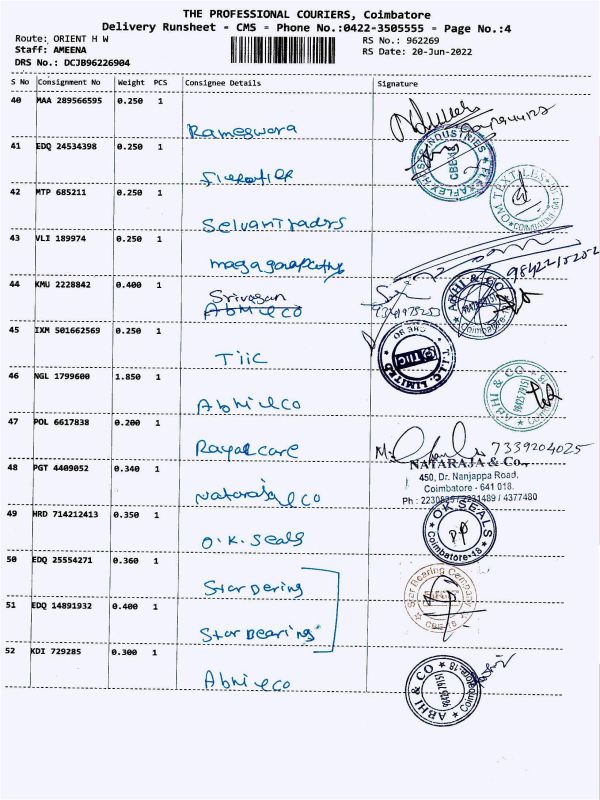 THE PROFESSIONAL COURIERS, Coimbatore
Delivery Runsheet - CMS - Phone No.:0422-3505555 - Page No.:4
Route: ORIENT H W
RS No.: 962269
Staff: AMEENA
RS Date: 20-Jun-2022
DRS No.: DCJB96226904
S No Consignment No Weight PCS Consignee Details Signature
40 MAA 289566595 0.250 1
Rameswara
41 EDQ 24534398 0.250 1
42 MTP 685211 0.250 1
Selvan Traders
43 VLI 189974 0.250 1
44 KMU 2228842 0.400 1
Srivasan
Abhi & Co
45 IXM 501662569 0.250 1
TIIC
46 NGL 1799600 1.850 1
Abhi & Co
47 POL 6617838 0.200 1
Royal care
7339204025
48 PGT 4409052 0.340 1
Nataraja & Co
NATARAJA & Co.,
450, Dr. Nanjappa Road,
Coimbatore - 641 018.
49 HRD 714212413 0.350 1
O.K. Seals
O.K. SEALS
Coimbatore-18
50 EDQ 25554271 0.360 1
Star Bering
Star Bearing Company
51 EDQ 14891932 0.400 1
Star Bearing
52 KDI 729285 0.300 1
Abhi & Co
ABHI & CO